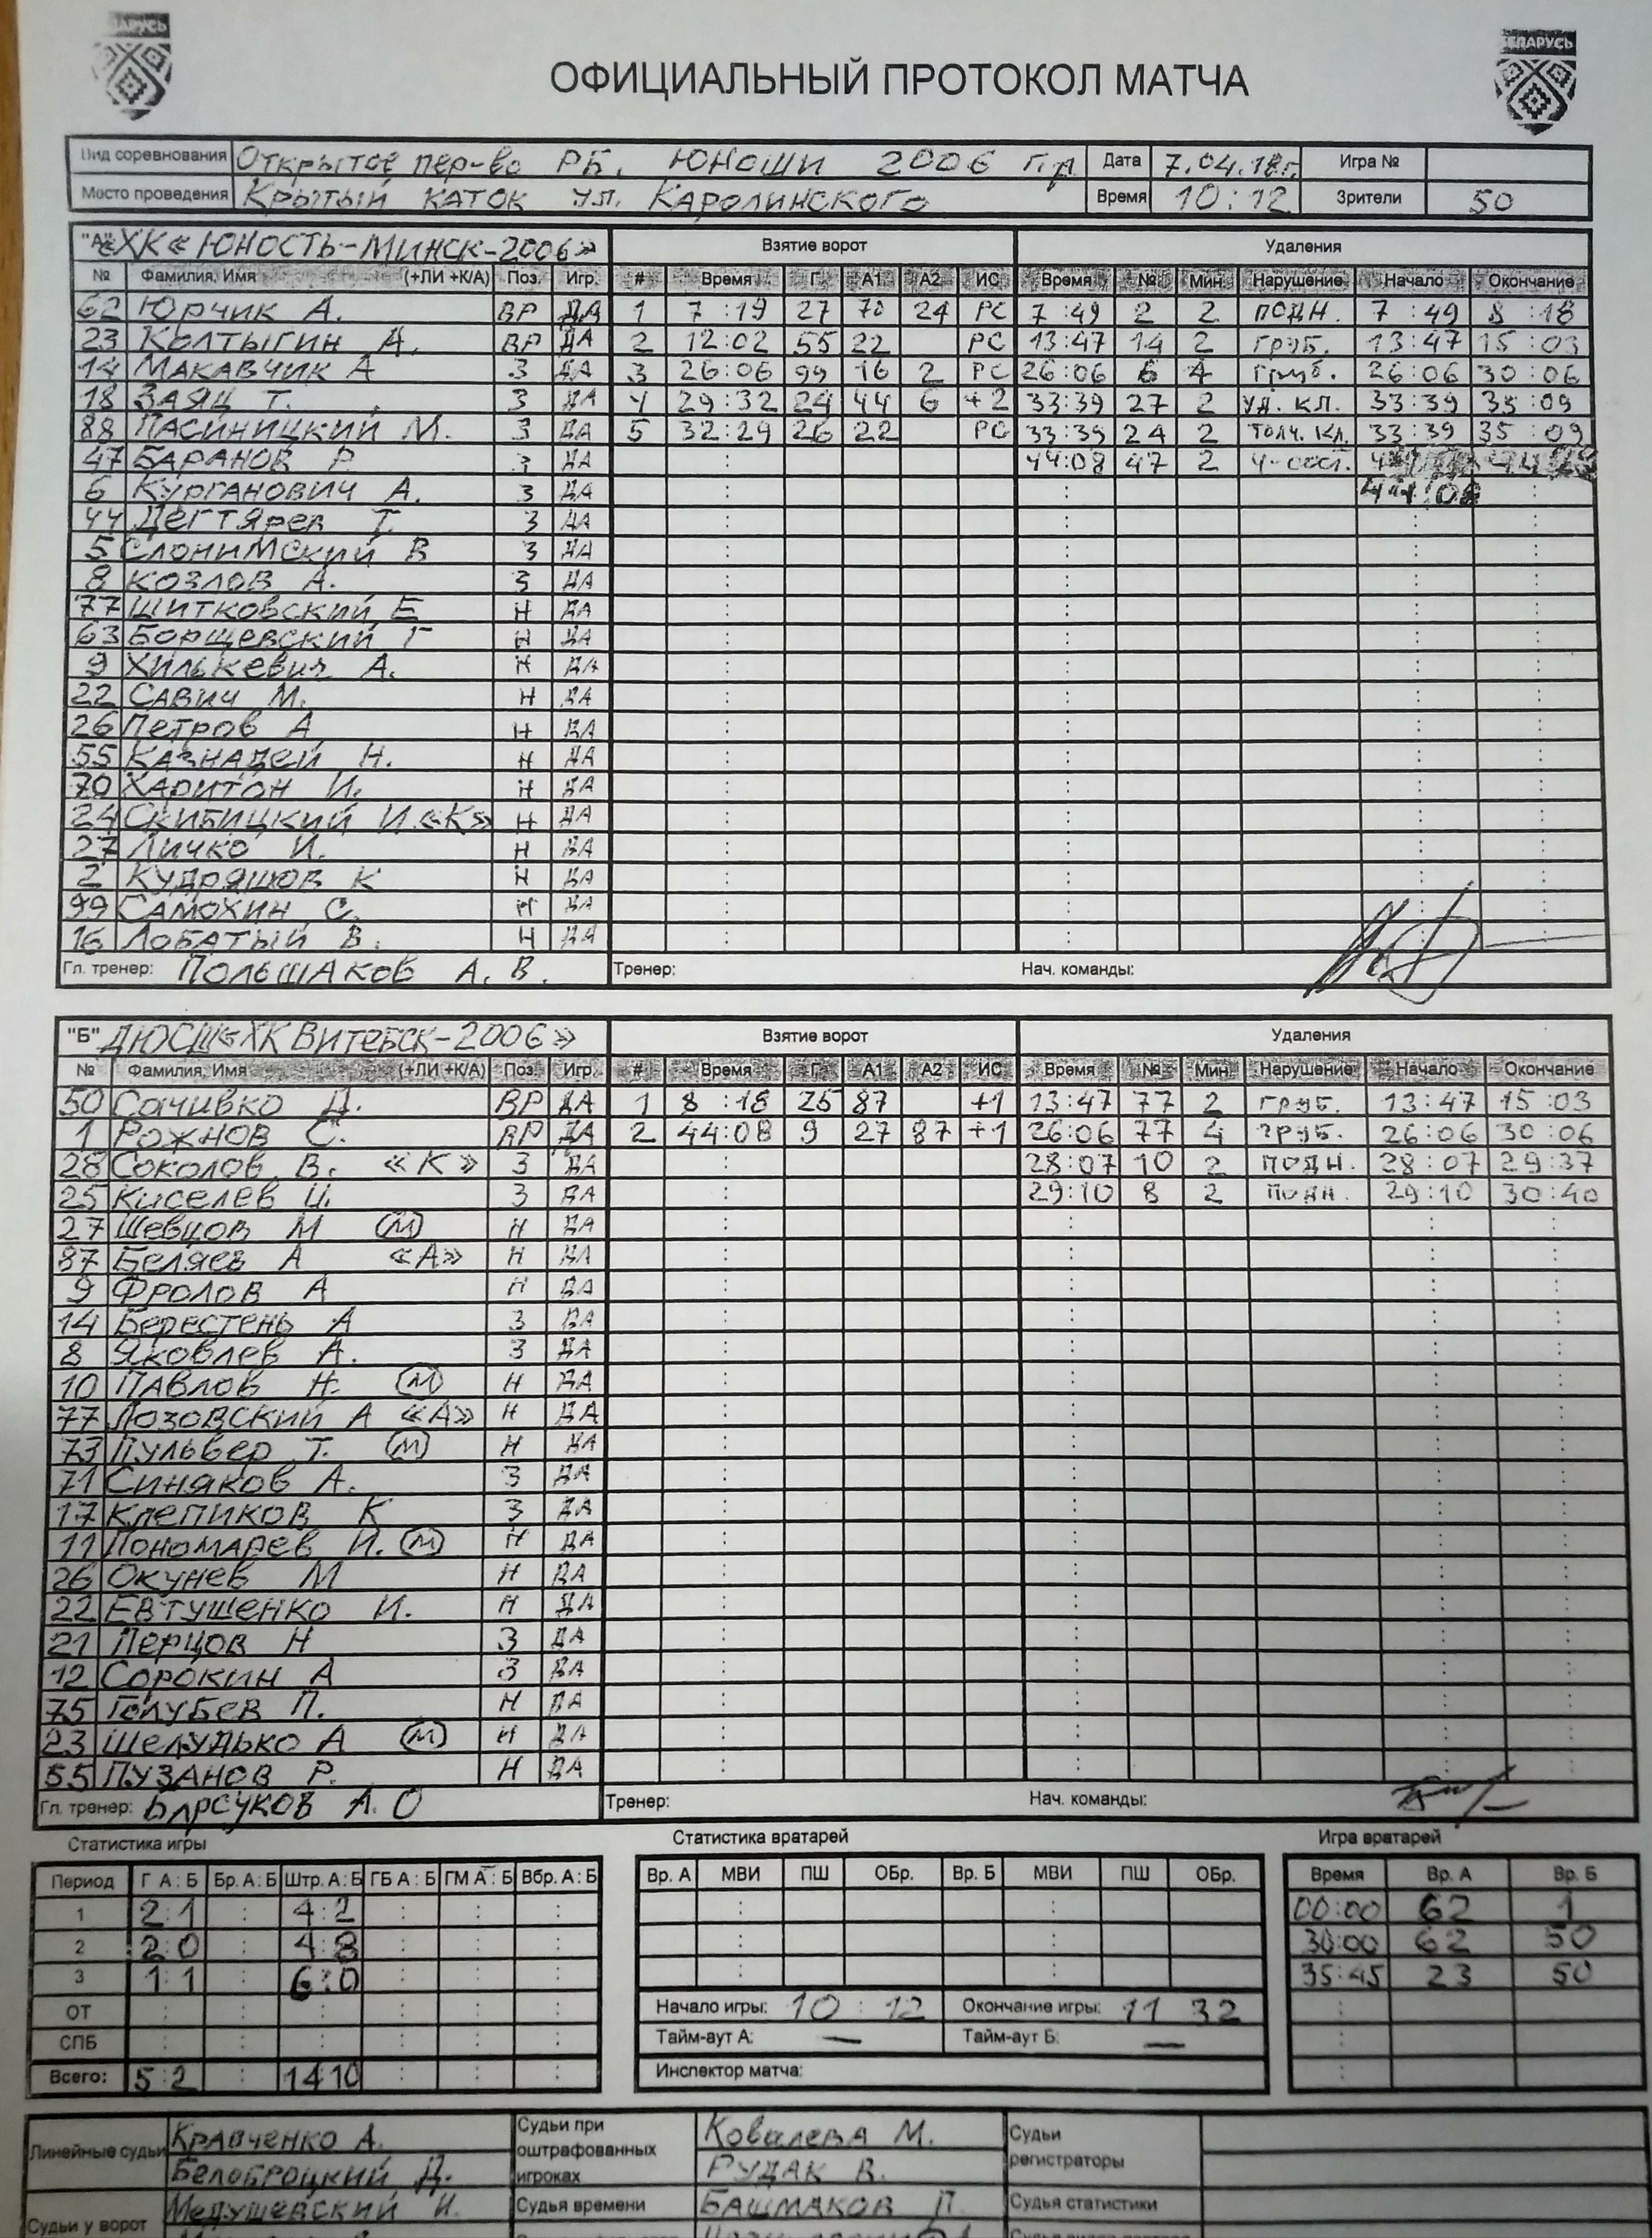 БЕЛАРУСЬ
ОФИЦИАЛЬНЫЙ ПРОТОКОЛ МАТЧА
Вид соревнования Открытое пер-во РБ. юноши 2006 г.р Дата 7.04.18г. Игра №
Место проведения Крытый каток ул. Каролинского Время 10:12 Зрители 50
"А" «ХК «Юность-Минск-2006» Взятие ворот Удаления
№ Фамилия, Имя (+ЛИ +К/А) Поз. Игр. # Время Г А1 А2 ИС Время № Мин. Нарушение Начало Окончание
62 Юрчик А. ВР ДА 1 7:19 27 70 24 РС 7:49 2 2 подн. 7:49 8:18
23 Колтыгин А. ВР ДА 2 12:02 55 22 РС 13:47 14 2 груб. 13:47 15:03
14 Макавчик А З ДА 3 26:06 99 16 2 РС 26:06 6 4 груб. 26:06 30:06
18 Заяц Т. З ДА 4 29:32 24 44 6 +2 33:39 27 2 уд. кл. 33:39 35:09
88 Пасиницкий М. З ДА 5 32:29 26 22 РС 33:39 24 2 толч. кл. 33:39 35:09
47 Баранов Р З ДА 44:08 47 2 ч-сост.
6 Курганович А. З ДА 44:08
44 Дегтярев Т. З ДА
5 Слонимский В З ДА
8 Козлов А. З ДА
77 Шитковский Е Н ДА
63 Борщевский Г Н ДА
9 Хилькевич А. Н ДА
22 Савич М. Н ДА
26 Петров А Н ДА
55 Казнадей Н. Н ДА
70 Харитон И. Н ДА
24 Скибицкий И. «К» Н ДА
27 Личко И. Н ДА
2 Кудряшов К Н ДА
99 Самохин С. Н ДА
16 Лобатый В. Н ДА
Гл. тренер: Польшаков А. В. Тренер: Нач. команды:
"Б" ДЮСШ «ХК Витебск-2006» Взятие ворот Удаления
№ Фамилия, Имя (+ЛИ +К/А) Поз. Игр. # Время Г А1 А2 ИС Время № Мин. Нарушение Начало Окончание
50 Сачивко Д. ВР ДА 1 8:18 25 87 +1 13:47 77 2 груб. 13:47 15:03
1 Рожнов С. ВР ДА 2 44:08 9 27 87 +1 26:06 77 4 груб. 26:06 30:06
28 Соколов В. «К» З ДА 28:07 10 2 подн. 28:07 29:37
25 Киселев И. З ДА 29:10 8 2 подн. 29:10 30:40
27 Шевцов М (М) Н ДА
87 Беляев А «А» Н ДА
9 Фролов А Н ДА
14 Берестень А З ДА
8 Яковлев А. З ДА
10 Павлов Н. (М) Н ДА
77 Лозовский А «А» Н ДА
73 Пульвер Т. (М) Н ДА
71 Синяков А. З ДА
17 Клепиков К З ДА
11 Пономарев И. (М) Н ДА
26 Окунев М Н ДА
22 Евтушенко И. Н ДА
21 Перцов Н З ДА
12 Сорокин А З ДА
75 Голубев П. Н ДА
23 Шелудько А (М) Н ДА
55 Пузанов Р. Н ДА
Гл. тренер: Барсуков А.О Тренер: Нач. команды:
Статистика игры Статистика вратарей Игра вратарей
Период Г А:Б Бр. А:Б Штр. А:Б ГБ А:Б ГМ А:Б Вбр. А:Б Вр. А МВИ ПШ ОБр. Вр. Б МВИ ПШ ОБр. Время Вр. А Вр. Б
1 2:1 4:2 00:00 62 1
2 2:0 4:8 30:00 62 50
3 1:1 6:0 35:45 23 50
ОТ Начало игры: 10:12 Окончание игры: 11 32
СПБ Тайм-аут А: — Тайм-аут Б: —
Всего: 5:2 14:10 Инспектор матча:
Линейные судьи Кравченко А. Судьи при оштрафованных игроках Ковалева М. Судьи регистраторы
Белоброцкий Д. Рудак В.
Судьи у ворот Медушевский И. Судья времени Башмаков П. Судья статистики